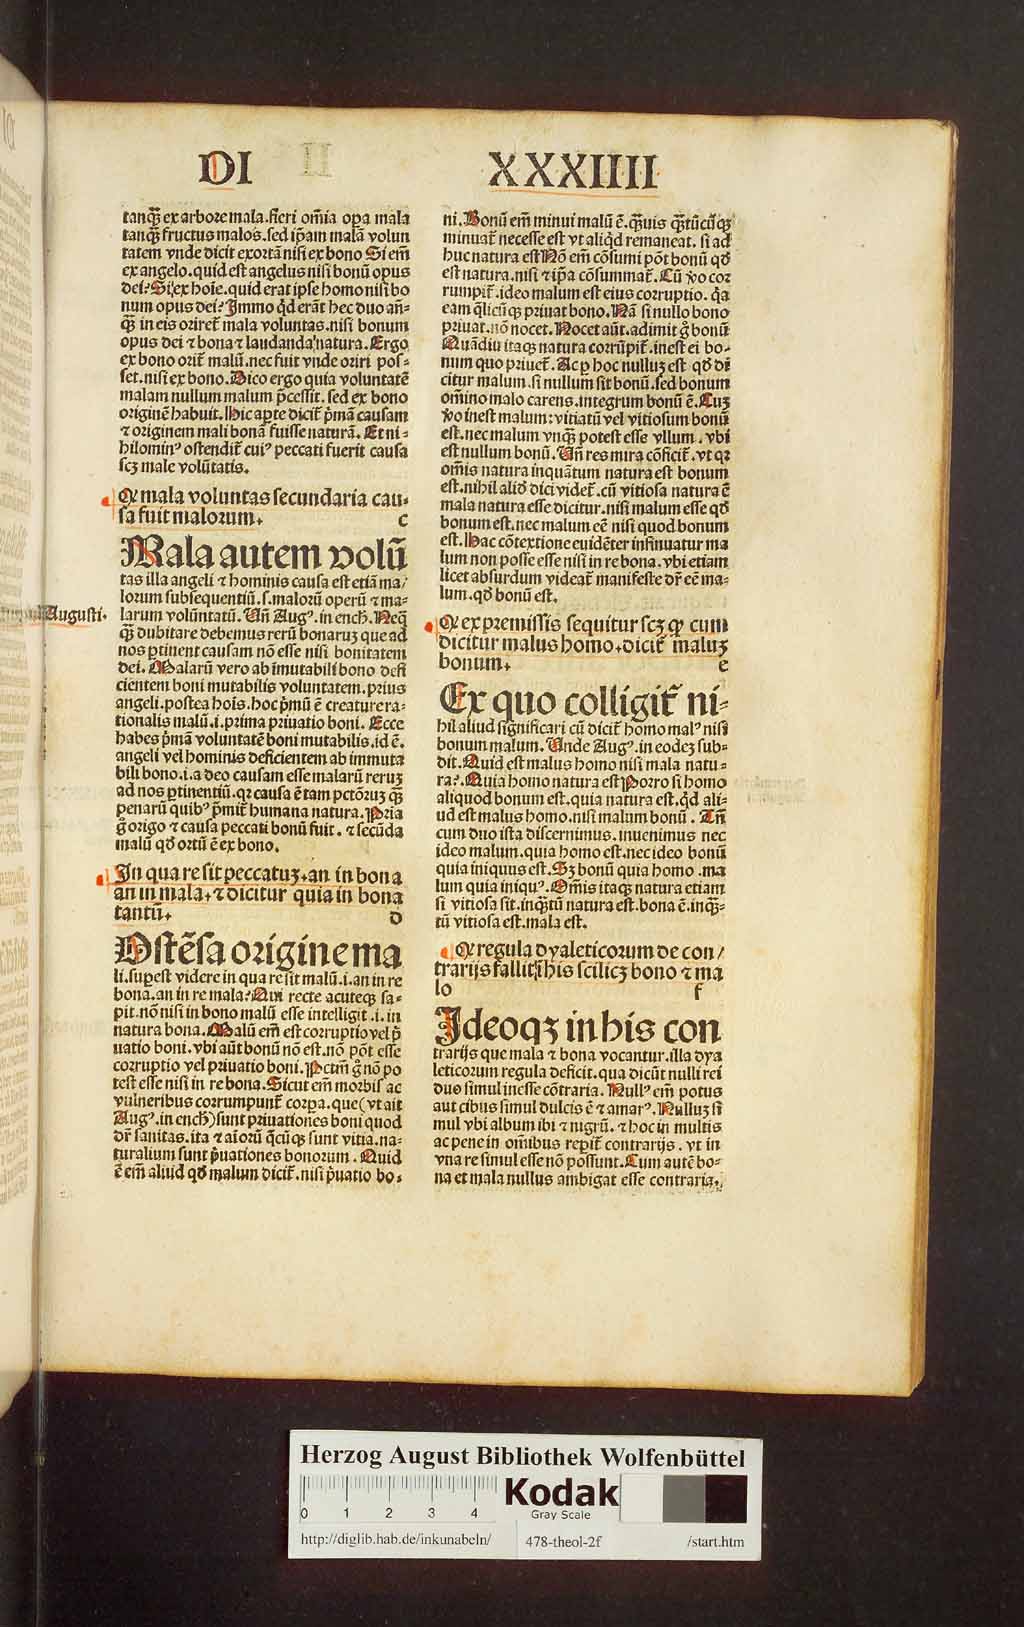 DI XXXIIII
tanq̃ ex arbore mala.fieri om̃ia opa mala
tanq̃ fructus malos.sed ip̃am malã volun
tatem vnde dicit exortã nisi ex bono Si em̃
ex angelo.quid est angelus nisi bonũ opus
dei? Si ex hoie.quid erat ipse homo nisi bo
num opus dei? Immo qd̓ erãt hec duo añ⸗
q̃ in eis oriret̃ mala voluntas.nisi bonum
opus dei ⁊ bona ⁊ laudanda natura. Ergo
ex bono orit̃ malũ.nec fuit vnde oriri pos⸗
set.nisi ex bono. Dico ergo quia voluntatẽ
malam nullum malum p̃cessit.sed ex bono
originẽ habuit. Hic apte dicit̃ p̓mã causam
⁊ originem mali bonã fuisse naturã. Et ni⸗
hilominꝰ ostendit̃ cuiꝰ peccati fuerit causa
scꝫ male volũtatis.
Ꝙ mala voluntas secundaria cau⸗
sa fuit malorum. c
Mala autem volũ
tas illa angeli ⁊ hominis causa est etiã ma/
lorum subsequentiũ.s.malorũ operũ ⁊ ma⸗
larum volũtatũ. Vñ Augꝰ.in ench̓. Neq̃
Augusti.
q̃ dubitare debemus rerũ bonaruꝫ que ad
nos ꝑtinent causam nõ esse nisi bonitatem
dei. Malarũ vero ab ĩmutabili bono defi
cientem boni mutabilis voluntatem.prius
angeli.postea hois.hoc p̓mũ ẽ creature ra⸗
tionalis malũ.i.prima priuatio boni. Ecce
habes p̓mã voluntatẽ boni mutabilis.id ẽ.
angeli vel hominis deficientem ab immuta
bili bono.i.a deo causam esse malarũ reruꝫ
ad nos ꝑtinentiũ.qꝛ causa ẽ tam pctõꝛuꝫ q̃
penarũ quibꝰ p̓mit̃ humana natura. Pria
g̊ origo ⁊ causa peccati bonũ fuit. ⁊ secũda
malũ qd̓ ortũ ẽ ex bono.
In qua re sit peccatuꝫ.an in bona
an in mala.⁊ dicitur quia in bona
tantũ. d
Ostẽsa origine ma
li.suꝑest videre in qua re sit malũ.i.an in re
bona.an in re mala? Qui recte acuteqꝫ sa⸗
pit.nõ nisi in bono malũ esse intelligit.i.in
natura bona. Malũ em̃ est corruptio vel p̓
uatio boni.vbi aũt bonũ nõ est.nõ põt esse
corruptio vel priuatio boni. Pctm̃ g̊ nõ po
test esse nisi in re bona. Sicut em̃ morbis ac
vulneribus corrumpunt̃ corpa.que (vt ait
Augꝰ.in ench̓) sunt priuationes boni quod
dr̃ sanitas.ita ⁊ aĩorũ q̃cũqꝫ sunt vitia.na⸗
turalium sunt p̓uationes bonorum. Quid
ẽ em̃ aliud qd̓ malum dicit̃.nisi p̓uatio bo⸗
ni. Bonũ em̃ minui malũ ẽ.q̃uis q̃tũcũqꝫ
minuat̃ necesse est vt aliqd̓ remaneat. si ad
huc natura est Nõ em̃ cõsumi põt bonũ qd̓
est natura.nisi ⁊ ip̃a cõsummat̃. Cũ v̊o cor
rumpit̃.ideo malum est eius corruptio. q̓a
eam q̃licũqꝫ priuat bono. Nã si nullo bono
priuat.nõ nocet. Nocet aũt.adimit g̊ bonũ
Quãdiu itaqꝫ natura corrũpit̃.inest ei bo⸗
num quo priuet̃. Ac ꝑ hoc nulluꝫ est qd̓ di
citur malum.si nullum sit bonũ.sed bonum
om̃ino malo carens.integrum bonũ ẽ. Cuꝫ
v̊o inest malum:vitiatũ vel vitiosum bonũ
est.nec malum vnq̃ potest esse vllum. vbi
est nullum bonũ. Vñ res mira cõficit̃.vt qꝛ
om̃is natura inquãtum natura est bonum
est.nihil aliđ dici videt̃.cũ vitiosa natura ẽ
mala natura esse dicitur.nisi malum esse qd̓
bonum est.nec malum eẽ nisi quod bonum
est. Hac cõtextione euidẽter insinuatur ma
lum non posse esse nisi in re bona.vbi etiam
licet absurdum videat̃ manifeste dr̃ eẽ ma⸗
lum.qd̓ bonũ est.
Ꝙ ex premissis sequitur scꝫ ꝙ cum
dicitur malus homo.dicit̃ maluꝫ
bonum. e
Ex quo colligit̃ ni⸗
hil aliud significari cũ dicit̃ homo malꝰ nisi
bonum malum. Unde Augꝰ.in eodeꝫ sub⸗
dit. Quid est malus homo nisi mala natu⸗
ra?. Quia homo natura est Porro si homo
aliquod bonum est.quia natura est.qd̓ ali⸗
ud est malus homo.nisi malum bonũ. Tñ
cum duo ista discernimus.inuenimus nec
ideo malum.quia homo est.nec ideo bonũ
quia iniquus est. Sꝫ bonũ quia homo.ma
lum quia iniquꝰ. Om̃is itaqꝫ natura etiam
si vitiosa sit.inq̃tũ natura est.bona ẽ.inq̃⸗
tũ vitiosa est.mala est.
Ꝙ regula dyaleticorum de con/
trarijs fallit̃ ĩ his scilicꝫ bono ⁊ ma
lo f
Ideoqꝫ in his con
trarijs que mala ⁊ bona vocantur.illa dya
leticorum regula deficit.qua dicũt nulli rei
duo simul inesse cõtraria. Nullꝰ em̃ potus
aut cibus simul dulcis ẽ ⁊ amarꝰ. Nulluꝫ si
mul vbi album ibi ⁊ nigrũ. ⁊ hoc in multis
ac pene in om̃ibus reꝑit̃ contrarijs. vt in
vna re simul esse nõ possunt. Cum autẽ bo⸗
na et mala nullus ambigat esse contraria.
Herzog August Bibliothek Wolfenbüttel
0 1 2 3 4
Kodak
Gray Scale
http://diglib.hab.de/inkunabeln/ 478-theol-2f /start.htm